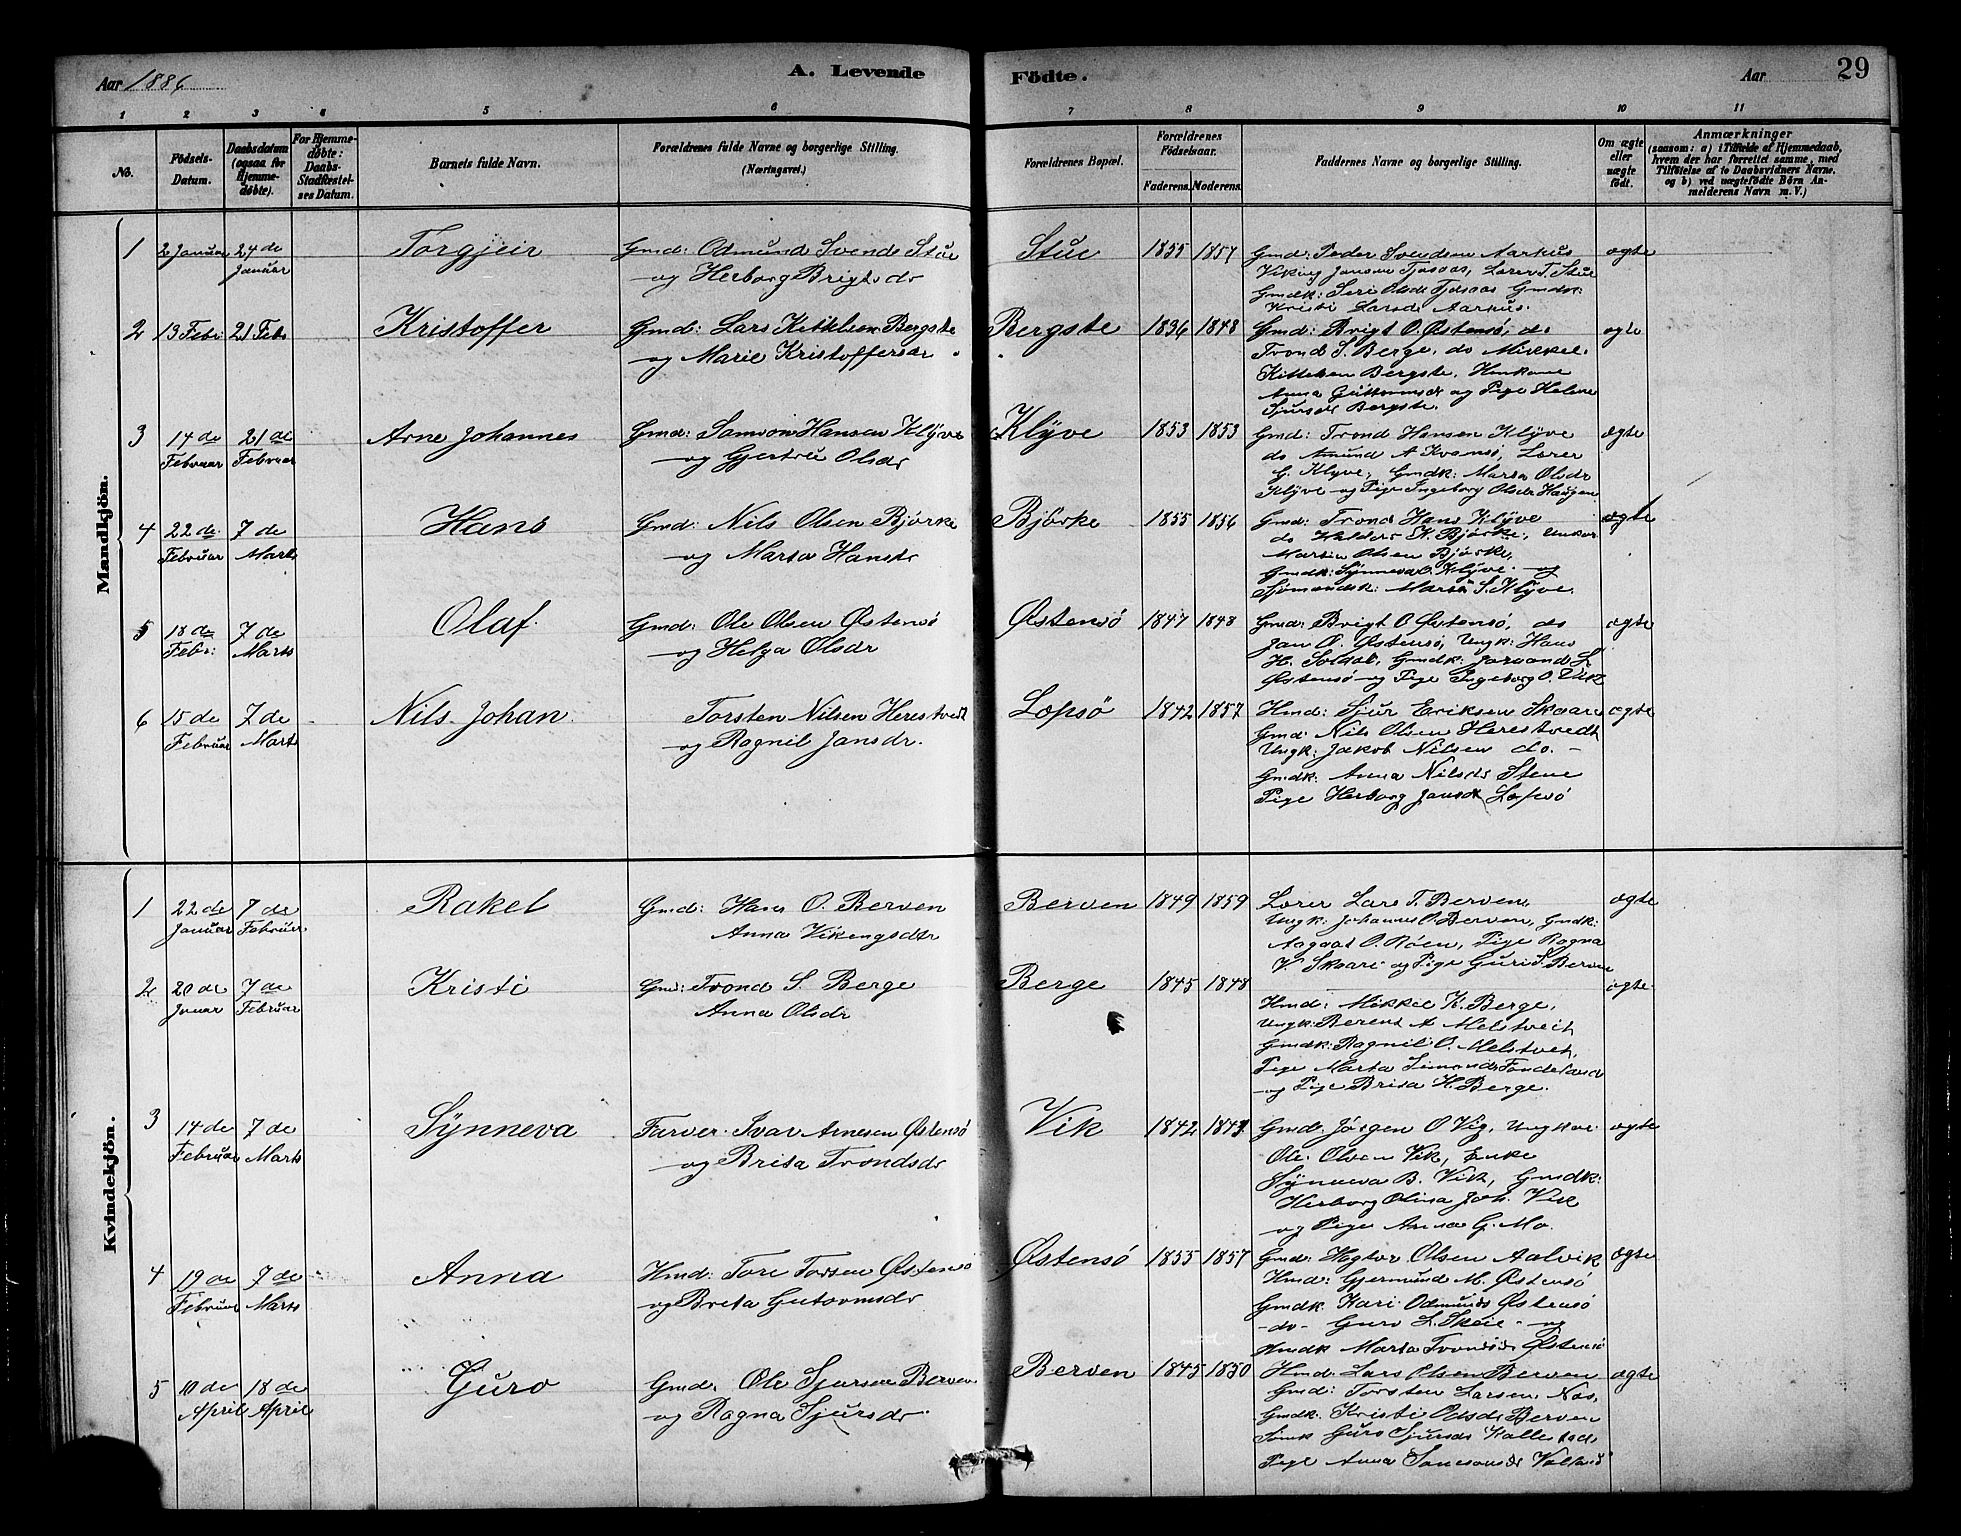 Aar 1886
A. Levende
Födte.
Aar
29
1 2 3 4 5 6 7 8 9 10 11
No.
Födsels-
Datum.
Daabsdatum
(ogsaa for
Hjemme-
døbte).
For Hjemme-
døbte:
Daabs
Stadfæstel-
ses Datum.
Barnets fulde Navn.
Forældrenes fulde Navne og borgerlige Stilling.
(Næringsvei.)
Forældrenes Bopæl.
Forældrenes
Födselsaar.
Faderens. Moderens.
Faddernes Navne og borgerlige Stilling.
Om ægte
eller
uægte
födt.
Anmærkninger
(saasom: a) i Tilfælde af Hjemmedaab,
hvem der har forrettet samme, med
Tilföielse af to Daabsvidners Navne,
og b) ved uægtefödte Börn An-
melderens Navn m. V.)
Mandkjön.
1 2 Januar 24de Januar Torgjeir
Gmd: Odmund Svends Stue
og Herborg Brigtsdr
Stue 1855 1857
Gmd: Peder Svendsen Aarhus
Viking Jansen Lærer T. Stue
Gmdk: Seri Olsdr Gmdk:
Kristi Larsdr Aarhus.
ægte
2 13 Febr 21 Febr Kristoffer
Gmd: Lars Kittelsen Bergste
og Marie Kristoffersdr
Bergste 1836 1848
Gmd: Brigt O. Østensö, do
Trond S. Berge, do Mikkel
Kittelsen Bergste, Hmkone
Anna Guttormsdr og Pige Helene
Sjursdr Bergste.
ægte
3 14de Februar 21de Februar Arne Johannes
Gmd: Samson Hansen Klÿve
og Gjertru Olsdr
Klÿve 1853 1853
Gmd: Trond Hansen Klÿve
do Amund A Lærer
G. Klÿve, Gmdk: Marta Olsdr
Klÿve og Pige Ingeborg Olsdr Haugen
ægte
4 22de Februar 7de Marts Hans
Gmd: Nils Olsen Björke
og Marta Hansdr
Björke 1855 1856
Gmd: Trond Hans Klÿve
do Halder K. Björke, Unkar
Martin Olsen Björke,
Gmdk: Synneva O. Klÿve og
Sjömandsk: Marta S. Klÿve.
ægte
5 18de Febr: 7de Marts Olaf.
Gmd: Ole Olsen Østensö
og Helga Olsdr
Østensö 1847 1848
Gmd: Brigt O Østensö, do
Jan O. Østensö, Ungk: Hans
H. Soldal, Gmdk: Joraand L
Østensö og Pige Ingeborg O. Vik
ægte
6 15de Februar 7de Marts Nils Johan
Torsten Nilsen Herestvedt
og Ragnil Jansdr.
Lopsö 1842 1857
Hmd: Sjur Eriksen Skaare
Gmd: Nils Olsen Herestvedt
Ungk: Jakob Nilsen do.
Gmdk: Anna Nilsdr Stene
Pige Herborg Jansdr Lofsö
ægte
Kvindekjön.
1 22de Januar 7de Februar Rakel
Gmd: Hans O. Berven
Anna Vikengsdtr
Berven 1849 1859
Lærer Lars T. Berven,
Ungk: Johannes O. Berven, Gmdk:
Aagaat O. Röen, Pige Ragna
V. Skaare og Pige Guri S. Berven
ægte
2 20de Januar 7de Februar Kristi
Gmd: Trond S. Berge
Anna Olsdr
Berge 1845 1848
Hmd: Mikkel K. Berge,
Ungk: Berent A Melstveit
Gmdk: Ragnil O. Melstvet,
Pige Marta Simonds
og Pige Brita H. Berge.
ægte
3 14de Februar 7de Marts Sÿnneva
Farver Ivar Arnesen Østensö
og Brita Trondsdr
Vik 1842
Gmd: Jörgen O Vig, Ungkar
Ole Olsen Vik, Enke
Sÿnneva B. Vik, Gmdk:
Herborg Olina Joh. Vik
og Pige Anna G. Mo.
ægte
4 19de Februar 7de Marts Anna
Hmd: Tore Torsen Østensö
og Brita Gutormsdr
Østensö 1855 1857
Gmd: Hagtor Olsen Aalvik
Hmd: Gjermund M. Østensö
Gmdk Kari Odmunds Østensö
-do- Guro L. Skeie og
Hmdk Marta Trondsdr Østensö
ægte
5 10de April 18de April Guro
Gmd: Ole Sjursen Berven
og Ragna Sjursdr
Berven 1845 1850
Hmd: Lars Olsen Berven
Gmd: Torsten Larsen Nas,
Gmdk: Kristi Odsdr Berven
Guro Sjursdr Kallestad
Pige Anna Samsonsdr
ægte